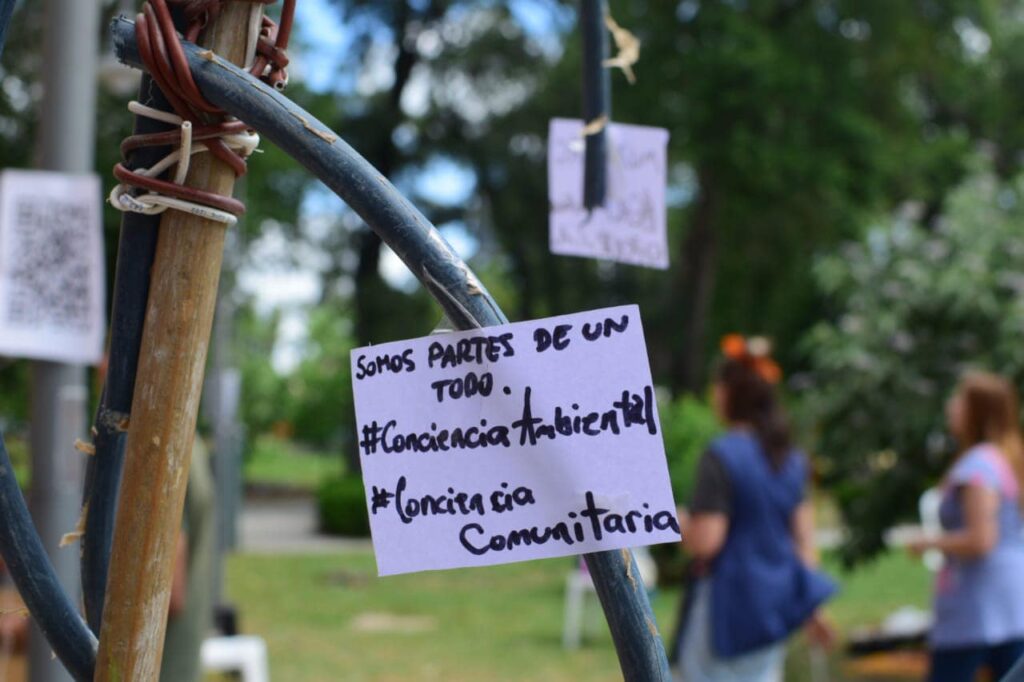 SOMOS PARTES DE UN
TODO.
#Conciencia Ambiental
#Conciencia
Comunitaria